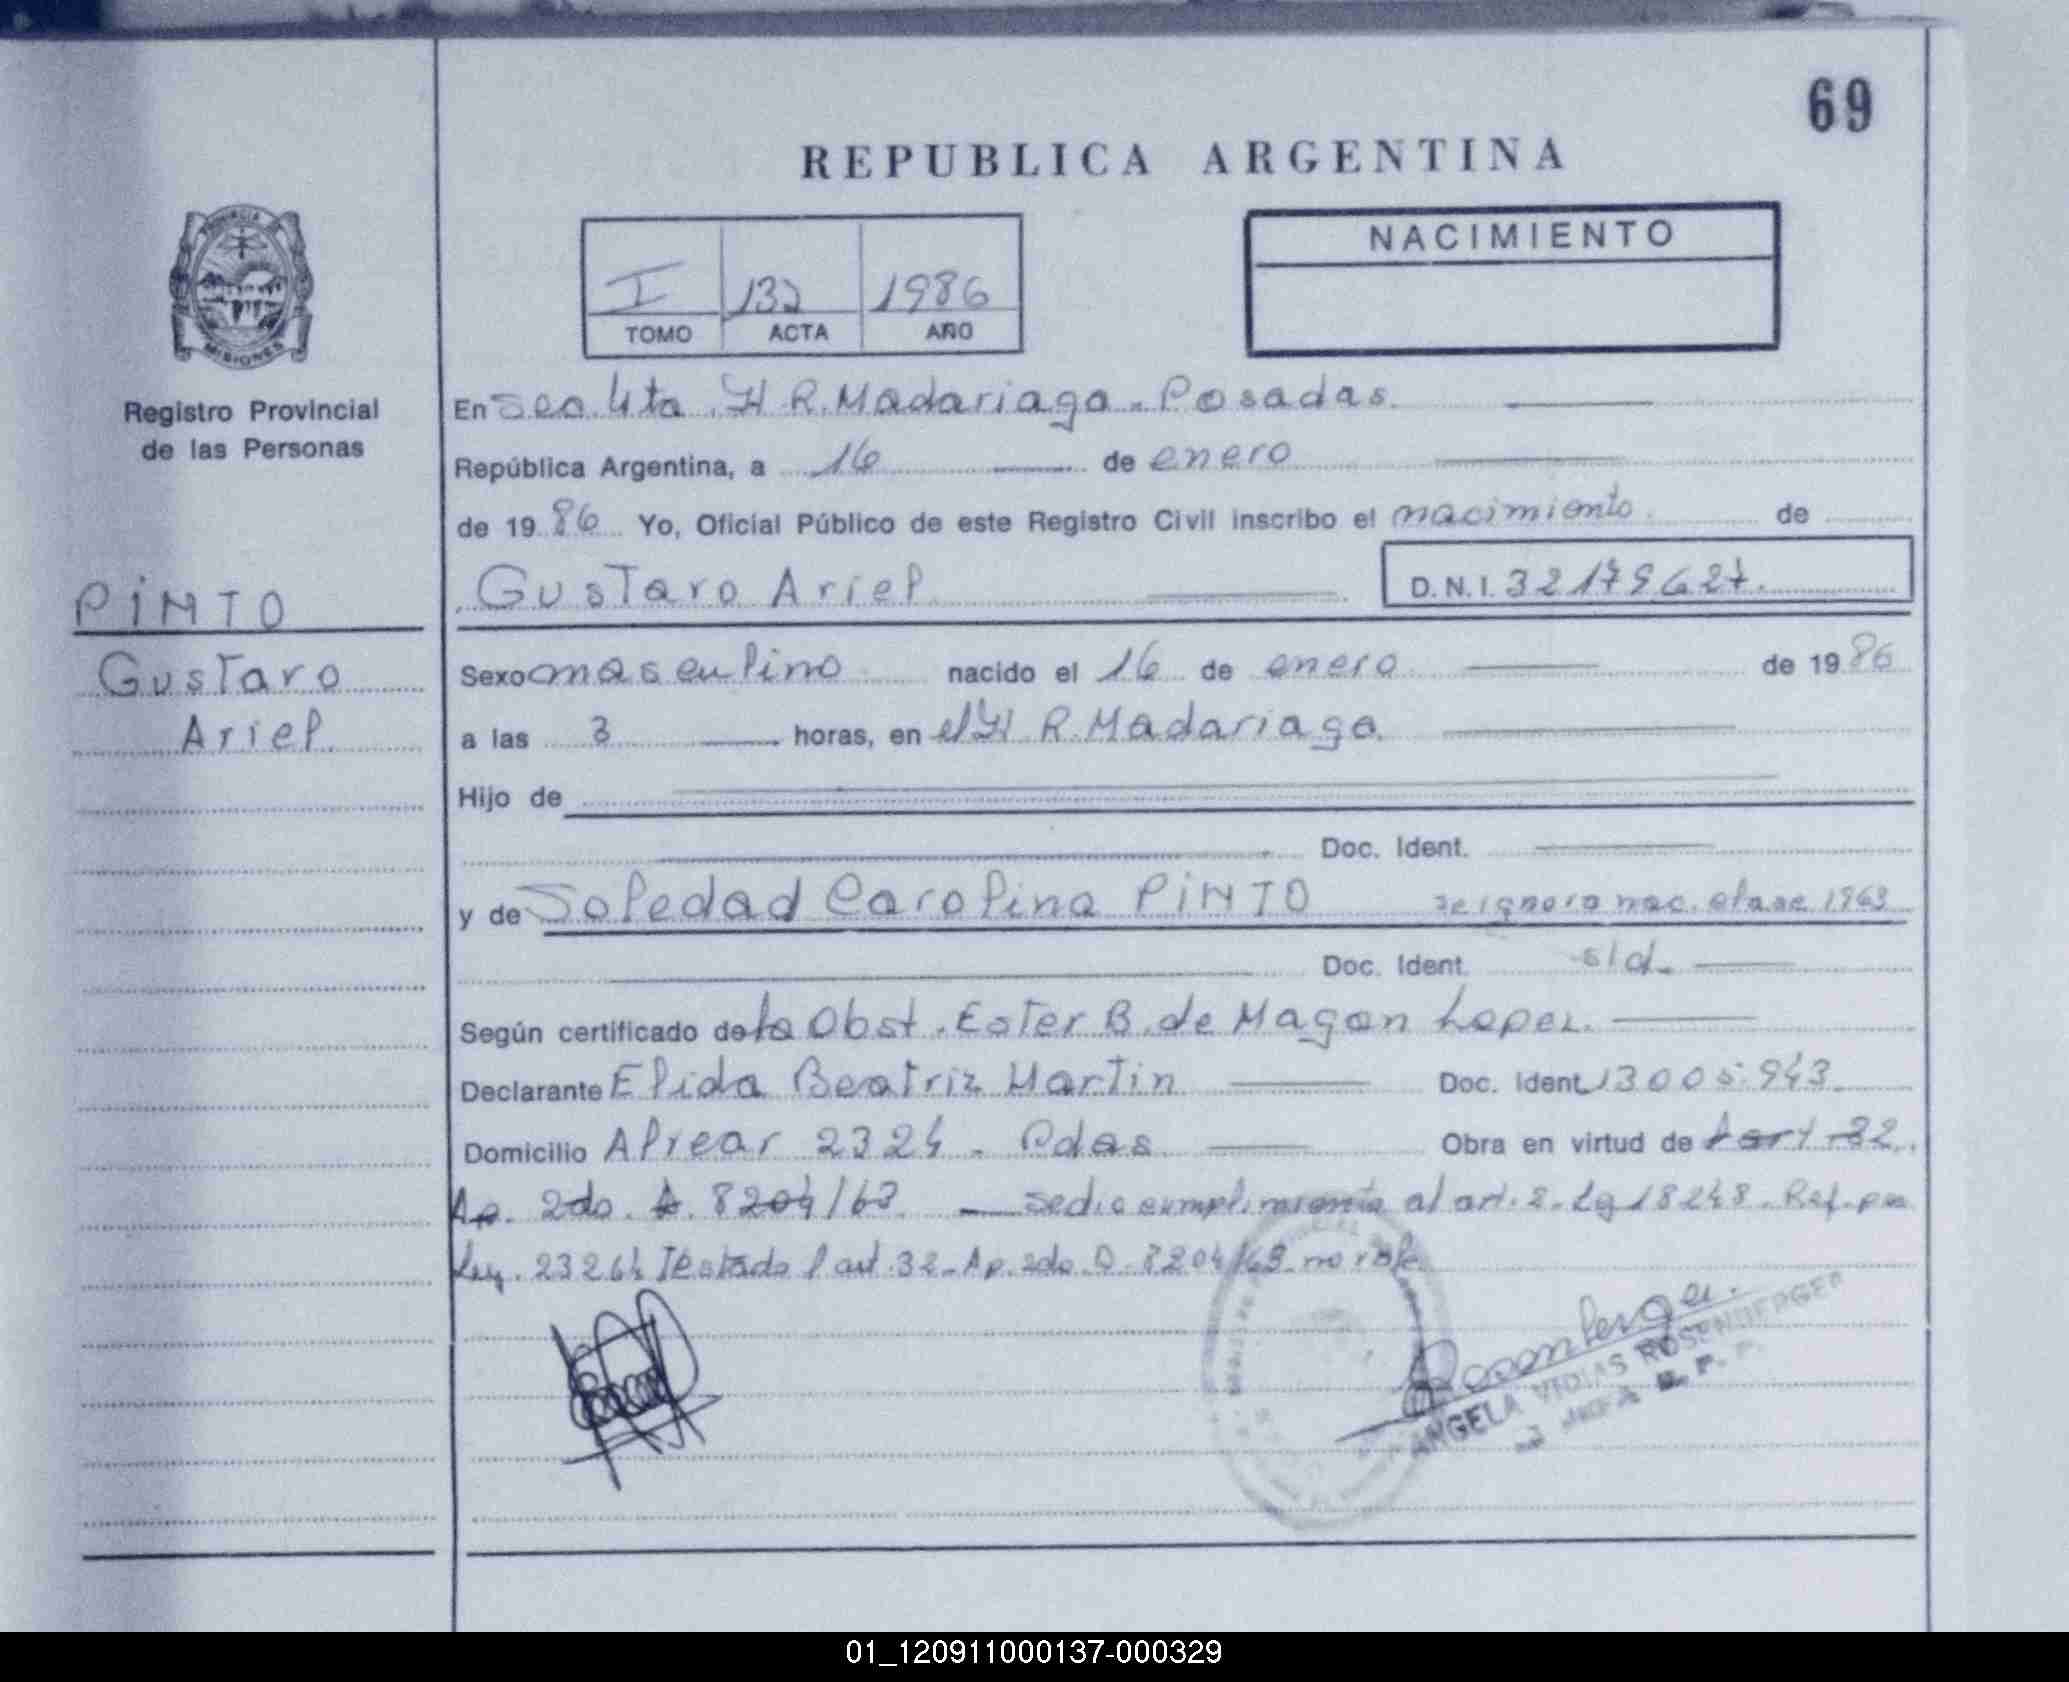 69
REPUBLICA ARGENTINA
PROVINCIA
MISIONES
I 132 1986
TOMO ACTA AÑO
NACIMIENTO
Registro Provincial
de las Personas
En Sec. 4ta. H. R. Madariaga - Posadas.
República Argentina, a 16 de enero
de 19 86 Yo, Oficial Público de este Registro Civil inscribo el nacimiento de
Gustavo Ariel
D.N.I. 32179.627.
PINTO
Gustavo
Ariel
Sexo masculino nacido el 16 de enero de 19 86
a las 3 horas, en el H. R. Madariaga.
Hijo de
Doc. Ident.
y de Soledad Carolina PINTO se ignora nac. clase 1963
Doc. Ident. s/d.
Según certificado de la Obst. Ester B. de Magan Lopez.
Declarante Elida Beatriz Martin Doc. Ident. 13005.943
Domicilio Alvear 2324 - Pdas Obra en virtud de l art 32.
Ap. 2do. D. 8204/63 se dio cumplimiento al art. 2 - Lg 18248 - Ref. por
Ley. 23264 Testado l art. 32 - Ap. 2do. D. 8204/63 no vale.
Rosenberger
ANGELA VIDIAS ROSENBERGER
JEFA R. P. P.
01_120911000137-000329